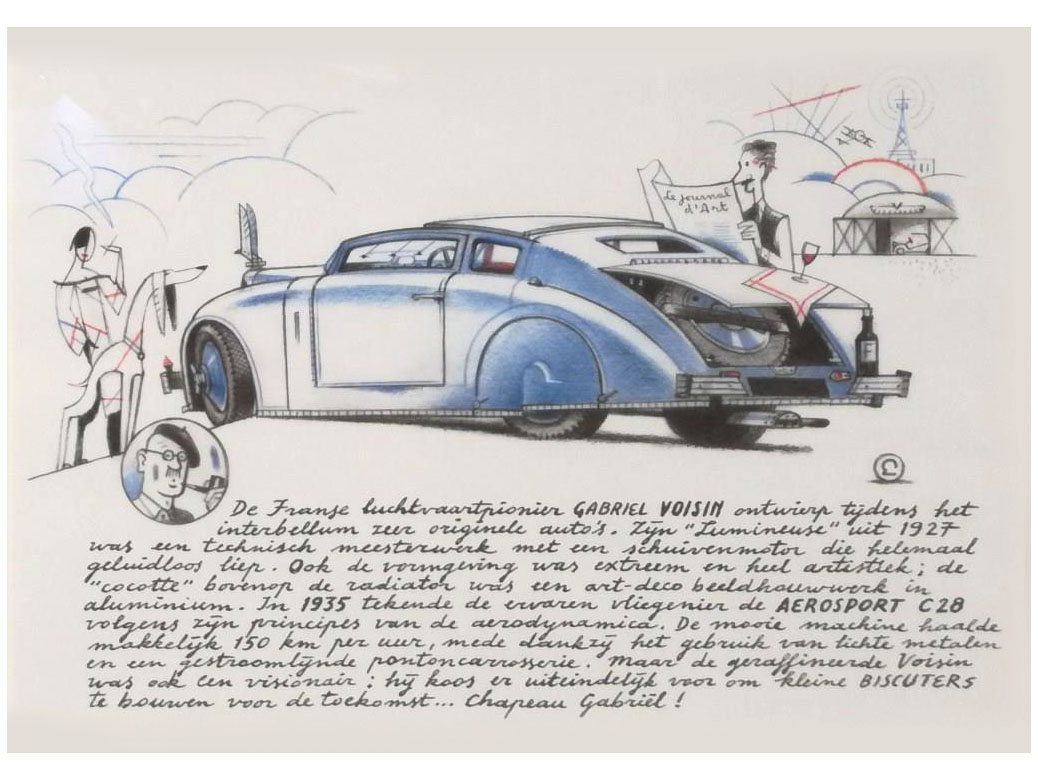 Le journal
d'Art
De Franse luchtvaartpionier GABRIEL VOISIN ontwierp tijdens het
interbellum zeer originele auto's. Zijn "Lumineuse" uit 1927
was een technisch meesterwerk met een schuivenmotor die helemaal
geluidloos liep. Ook de vormgeving was extreem en heel artistiek; de
"cocotte" bovenop de radiator was een art-deco beeldhouwwerk in
aluminium. In 1935 tekende de ervaren vliegenier de AEROSPORT C28
volgens zijn principes van de aerodynamica. De mooie machine haalde
makkelijk 150 km per uur, mede dankzij het gebruik van lichte metalen
en een gestroomlijnde pontoncarrosserie. Maar de geraffineerde Voisin
was ook een visionair; hij koos er uiteindelijk voor om kleine BISCUTERS
te bouwen voor de toekomst... Chapeau Gabriël!